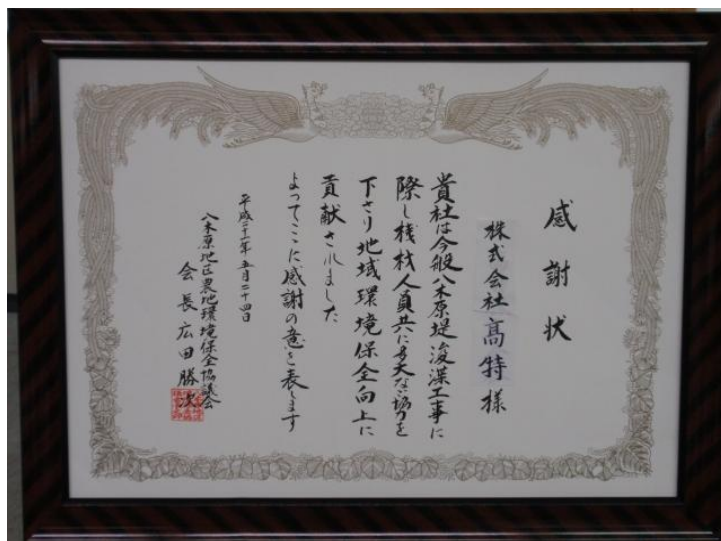 感謝状
株式会社髙特様
貴社は今般八木原堤浚渫工事に
際し機材人員共に多大な協力を
下さり地域環境保全向上に
貢献されました
よってここに感謝の意を表します
平成二十一年五月二十四日
八木原地区農地環境保全協議会
会長広田勝次